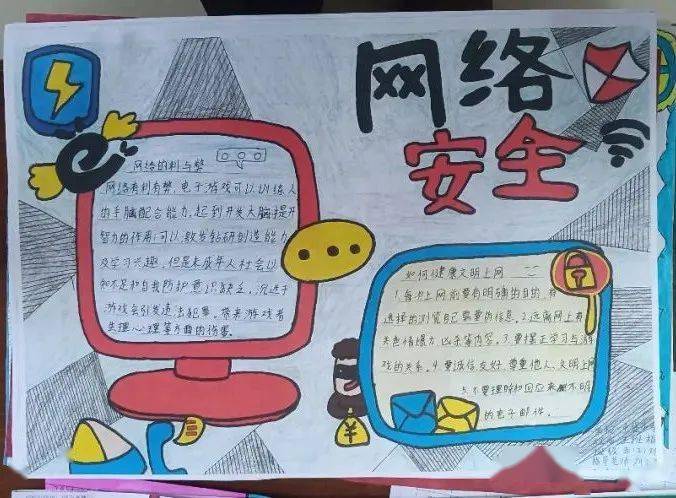 网络
安全
网络的利与弊
网络有利有弊,电子游戏可以训练人
的手脑配合能力,起到开发大脑提升
智力的作用;可以激发钻研创造能力
及学习兴趣,但是未成年人社会认
知不足和自我防护意识缺乏,沉迷于
游戏会引发违法犯罪,带来游戏者
生理心理等方面的伤害。
如何健康文明上网
1.每次上网前要有明确的目的,有
选择的浏览自己需要的信息。2.远离网上有
关色情暴力、凶杀等内容。3.要摆正学习与游
戏的关系。4.要诚信友好、尊重他人、文明上网
5.不要理睬和回应来历不明
的电子邮件。